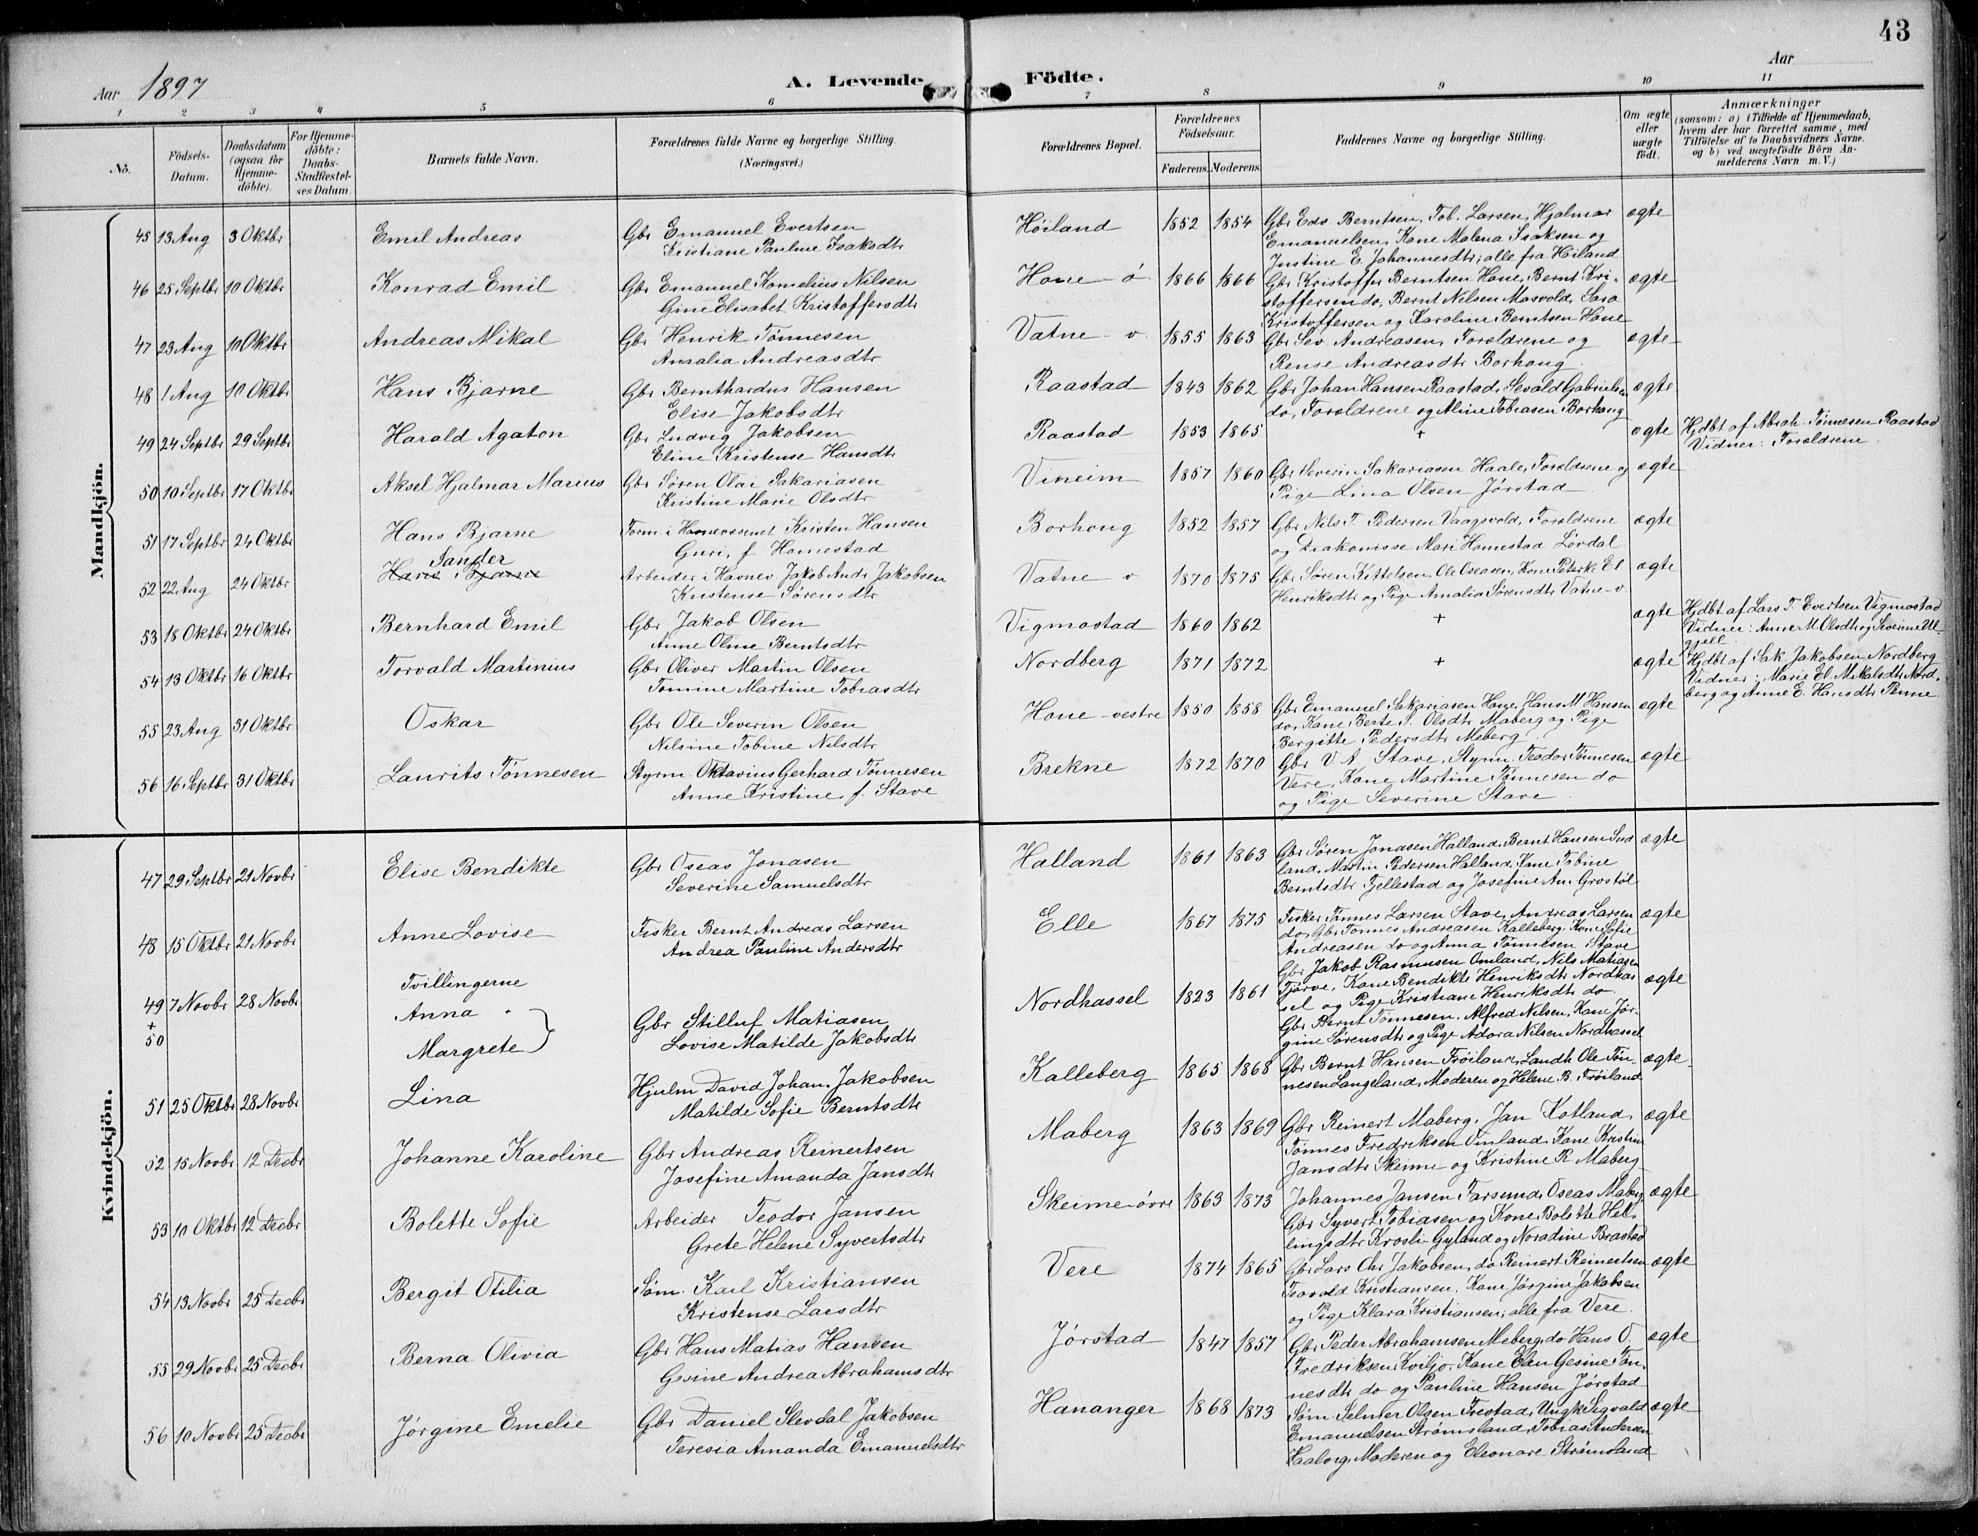 43
Aar 1897
A. Levende Födte.
Aar
1 2 3 4 5 6 7 8 9 10 11
No.
Födsels-Datum.
Daabsdatum (ogsaa for Hjemme-döbte).
For Hjemme-döbte: Daabs-Stadfæstel-ses Datum.
Barnets fulde Navn.
Forældrenes fulde Navne og borgerlige Stilling (Næringsvei.)
Forældrenes Bopæl.
Forældrenes Födselsaar.
Faderens. Moderens.
Faddernes Navne og borgerlige Stilling.
Om ægte eller uægte födt.
Anmærkninger
(saasom: a) i Tilfælde af Hjemmedaab, hvem der har forrettet samme, med Tilföielse af to Daabsvidners Navne. og b) ved uægtefödte Börn Anmelderens Navn m. V.)
Mandkjön.
45 13 Aug 3 Oktbr Emil Andreas Gbr Emanuel Evertsen Høiland 1852 1854 Gbr Edv. Berntsen, Tob. Larsen, Hjalmar ægte
Kristiane Pauline Isaksdtr Emanuelsen, Kone Malena Isaksen og
Justine E. Johannesdtr, alle fra Høiland
46 25 Septbr 10 Oktbr Konrad Emil Gbr Emanuel Kornelius Nilsen Hone ø 1866 1866 Gbr Kristoffer Berntsen Hone, Bernt Kri- ægte
Gine Elisabet Kristoffersdtr stoffersen do, Bernt Nilsen Mosvold, Sara
Kristoffersen og Karoline Berntsen Hone
47 23 Aug 10 Oktbr Andreas Mikal Gbr Henrik Tønnesen Vatne v 1855 1863 Gbr Sev. Andreasen, Forældrene og ægte
Amalia Andreasdtr Rense Andreasdtr Borhaug
48 1 Aug 10 Oktbr Hans Bjarne Gbr Bernthardus Hansen Raastad 1843 1862 Gbr Johan Hansen Raastad, Sevald Gabrielsen ægte
Elise Jakobsdtr do, Forældrene og Aline Tobiasen Borhaug
49 24 Septbr 29 Septbr Harald Agaton Gbr Ludvig Jakobsen Raastad 1853 1865 + ægte Hjdbt af Abrah. Tønnesen Raastad
Eline Kristense Hansdtr Vidner: Forældrene.
50 10 Septbr 17 Oktbr Aksel Hjalmar Marius Gbr Søren Olai Sakariasen Vineim 1857 1860 Gbr Severin Sakariasen Haale, Forældrene og ægte
Kristine Marie Olsdtr Pige Lina Olsen Jørstad
51 17 Septbr 24 Oktbr Hans Bjarne Form i Havnevæsenet Kristen Hansen Borhoug 1852 1857 Gbr Nils T. Pedersen Vaagsvold, Forældrene ægte
Guri, f Homestad og Diakonisse Mari Homestad Lördal
52 22 Aug 24 Oktbr Sander Hans Bjarne Arbeider i Havnev Jakob Andr Jakobsen Vatne v 1870 1875 Gbr Søren Kittelsen, Ole Oseasen, Kone Peterke El ægte
Kristense Sørensdtr Henriksdtr og Pige Amalia Sørensdtr Vatne v.
53 18 Oktbr 24 Oktbr Bernhard Emil Gbr Jakob Olsen Vigmostad 1860 1862 + ægte Hjdbt af Lars T. Evertsen Vigmostad
Anne Oline Berntsdtr Vidner: Anne M Olsdtr og Severine Ul-
gjell
54 13 Oktbr 16 Oktbr Torvald Martinius Gbr Oliver Martin Olsen Nordberg 1871 1872 + ægte Hjdbt af Sak. Jakobsen Nordberg
Tomine Martine Tobiasdtr Vidner: Marie El Mikalsdtr Nord-
berg og Anne E. Hansdtr Penne
55 23 Aug 31 Oktbr Oskar Gbr Ole Severin Olsen Hone vestre 1850 1858 Gbr Emanuel Sakariasen Hone, Hans M Hansen ægte
Nilsine Tobine Nilsdtr do, Kone Berte S. Olsdtr Maberg og Pige
Bergitte Pedersdtr Meberg
56 16 Septbr 31 Oktbr Laurits Tønnesen Styrm. Oktavius Gerhard Tønnesen Brekne 1872 1870 Gbr V A Stave, Styrm. Teodor Tønnesen ægte
Anne Kristine, f. Stave Vere, Kone Martine Tønnesen do
og Pige Severine Stave
Kvindekjön.
47 29 Septbr 21 Novbr Elise Bendikte Gbr Oseas Jonasen Halland 1861 1863 Gbr Søren Jonasen Halland, Bernt Hansen Sud ægte
Severine Samuelsdtr land, Martin Pedersen Halland, Kone Tobine
Berntsdtr Fjellestad og Josefine An. Grostøl
48 15 Oktbr 21 Novbr Anne Lovise Fisker Bernt Andreas Larsen Elle 1867 1875 Fisker Tønnes Larsen Stave, Andreas Larsen ægte
Andrea Pauline Andersdtr do, Gbr Tønnes Andreasen Kalleberg, Kone Sofie
Andreasen do og Anna Tønnesen Stave
49 + 50 7 Novbr 28 Novbr Tvillingerne Anna Margrete } Gbr Stilluf Matiasen Nordhassel 1823 1861 Gbr Jakob Rasmusen Omland, Nils Matiasen ægte
Lovise Matilde Jakobsdtr Tjørve, Kone Bendikte Henriksdtr Nordhas
sel og Pige Kristiane Henriksdtr do.
Gbr Bernt Tønnesen, Alfred Nilsen, Kone Jør-
gine Sørensdtr og Pige Adora Nilsen Nordhassel
51 25 Oktbr 28 Novbr Lina Hjulm David Johan Jakobsen Kalleberg 1865 1868 Gbr Bernt Hansen Frøiland, Landh. Ole Tøn- ægte
Matilde Sofie Berntsdtr nesen Langeland, Moderen og Helene B. Frøiland
52 15 Novbr 12 Decbr Johanne Karoline Gbr Andreas Reinertsen Maberg 1863 1869 Gbr Reinert Maberg, Jan Kotland, ægte
Josefine Amanda Jansdtr Tønnes Fredriksen Omland, Kone Kristine
Jansdtr Skeime og Kristine R. Maberg
53 10 Oktbr 12 Decbr Bolette Sofie Arbeider Teodor Jansen Skeime øvre 1863 1873 Johannes Jansen Farsund, Oseas Maberg ægte
Grete Helene Syvertsdtr Gbr Syvert Tobiasen og Kone Bolette Hel-
lingsdtr Krosli Gyland og Noradine Brastad
54 13 Novbr 25 Decbr Bergit Otilia Søm. Karl Kristiansen Vere 1874 1865 Gbr Lars Chr Jakobsen, do Reinert Reinertsen ægte
Kristense Larsdtr Teovald Kristiansen, Kone Jørgine Jakobsen
og Pige Klara Kristiansen, alle fra Vere.
55 29 Novbr 25 Decbr Berna Olivia Gbr Hans Matias Hansen Jørstad 1847 1857 Gbr Peder Abrahamsen Meberg, do Hans O. ægte
Gesine Andrea Abrahamsdtr Fredriksen Kviljo, Kone Elen Gesine Tøn-
nesdtr do og Pauline Hansen Jørstad
56 10 Novbr 25 Decbr Jørgine Emelie Gbr Daniel Slevdal Jakobsen Hananger 1868 1873 Søm. Selmer Olsen Frestad, Ungk. Sigvald ægte
Teresia Amanda Emanuelsdtr Emanuelsen Strømsland, Tobias Andersen
Haaborg, Moderen og Eleonare Strømsland